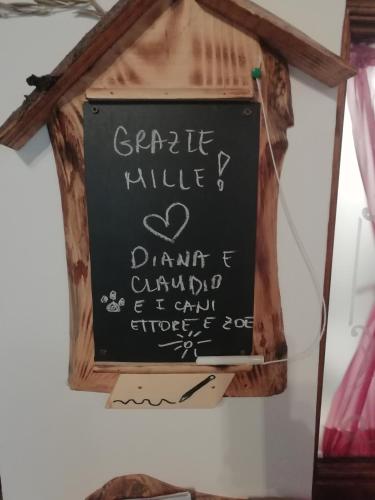 GRAZIE
MILLE!
DIANA E
CLAUDIO
E I CANI
ETTORE E ZOE